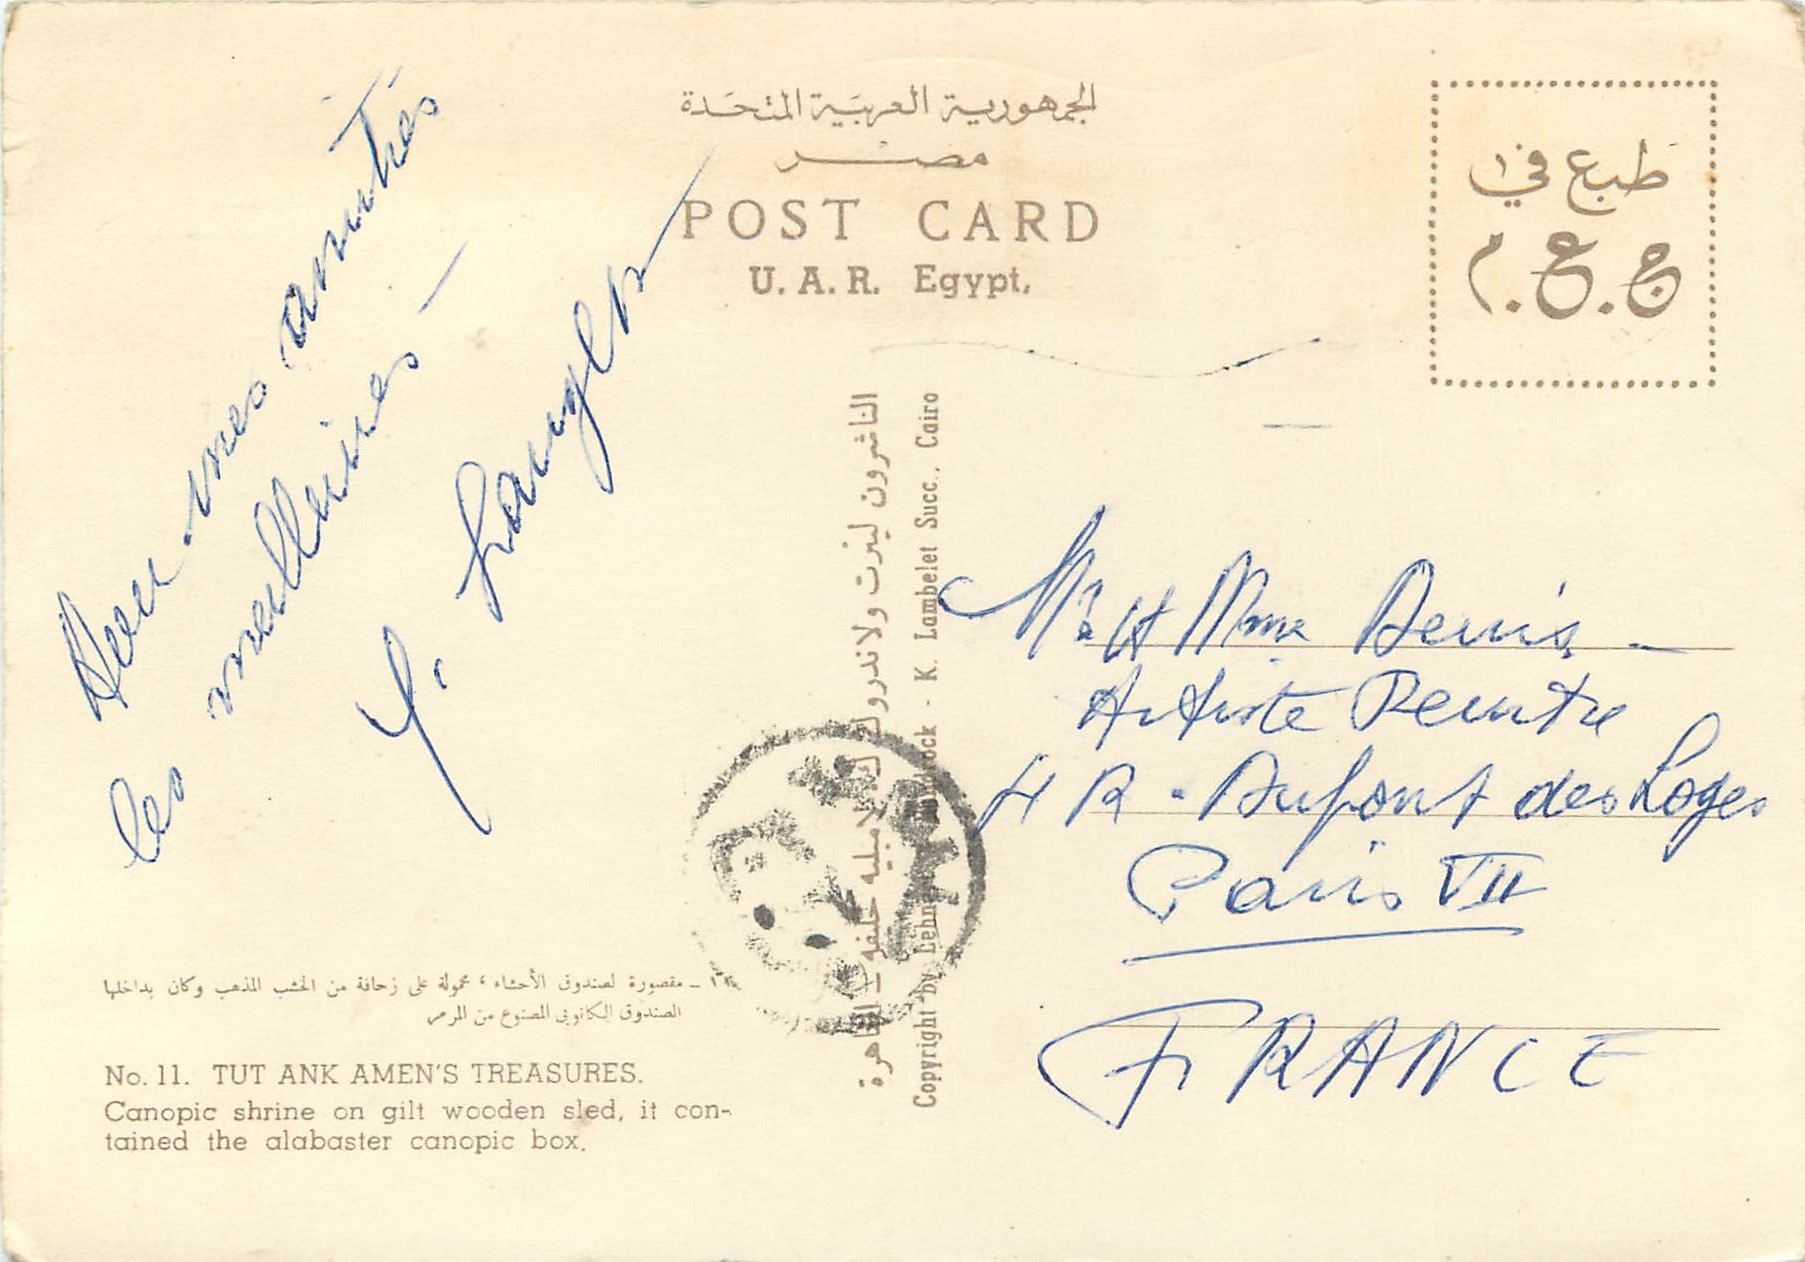 الجمهورية العربية المتحدة
مصر
POST CARD
U. A. R. Egypt.
طبع في
ج . ع . م
mes amitiés
les meilleures -
y.
الناشرون لينرت ولاندروك ك. لامبليه خلفه – القاهرة
Copyright by Lehnert & Landrock - K. Lambelet Succ., Cairo
Mr et Mme Denis -
Artiste Peintre
4 R. Dupont des Loges
Paris VII
FRANCE
١١ ـ مقصورة لصندوق الأحشاء ، محمولة على زحافة من الخشب المذهب وكان بداخلها
الصندوق الكانوبى المصنوع من المرمر
No. 11. TUT ANK AMEN'S TREASURES.
Canopic shrine on gilt wooden sled, it con-
tained the alabaster canopic box.